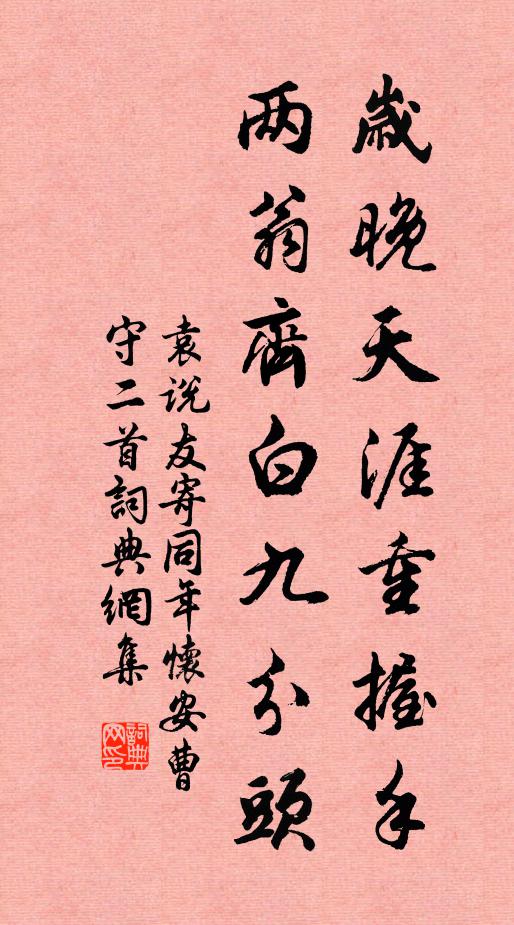 歲晚天涯重握手
两翁齊白九分頭
袁説友寄同年懷安曹
守二首詞典網集
詞典
网印